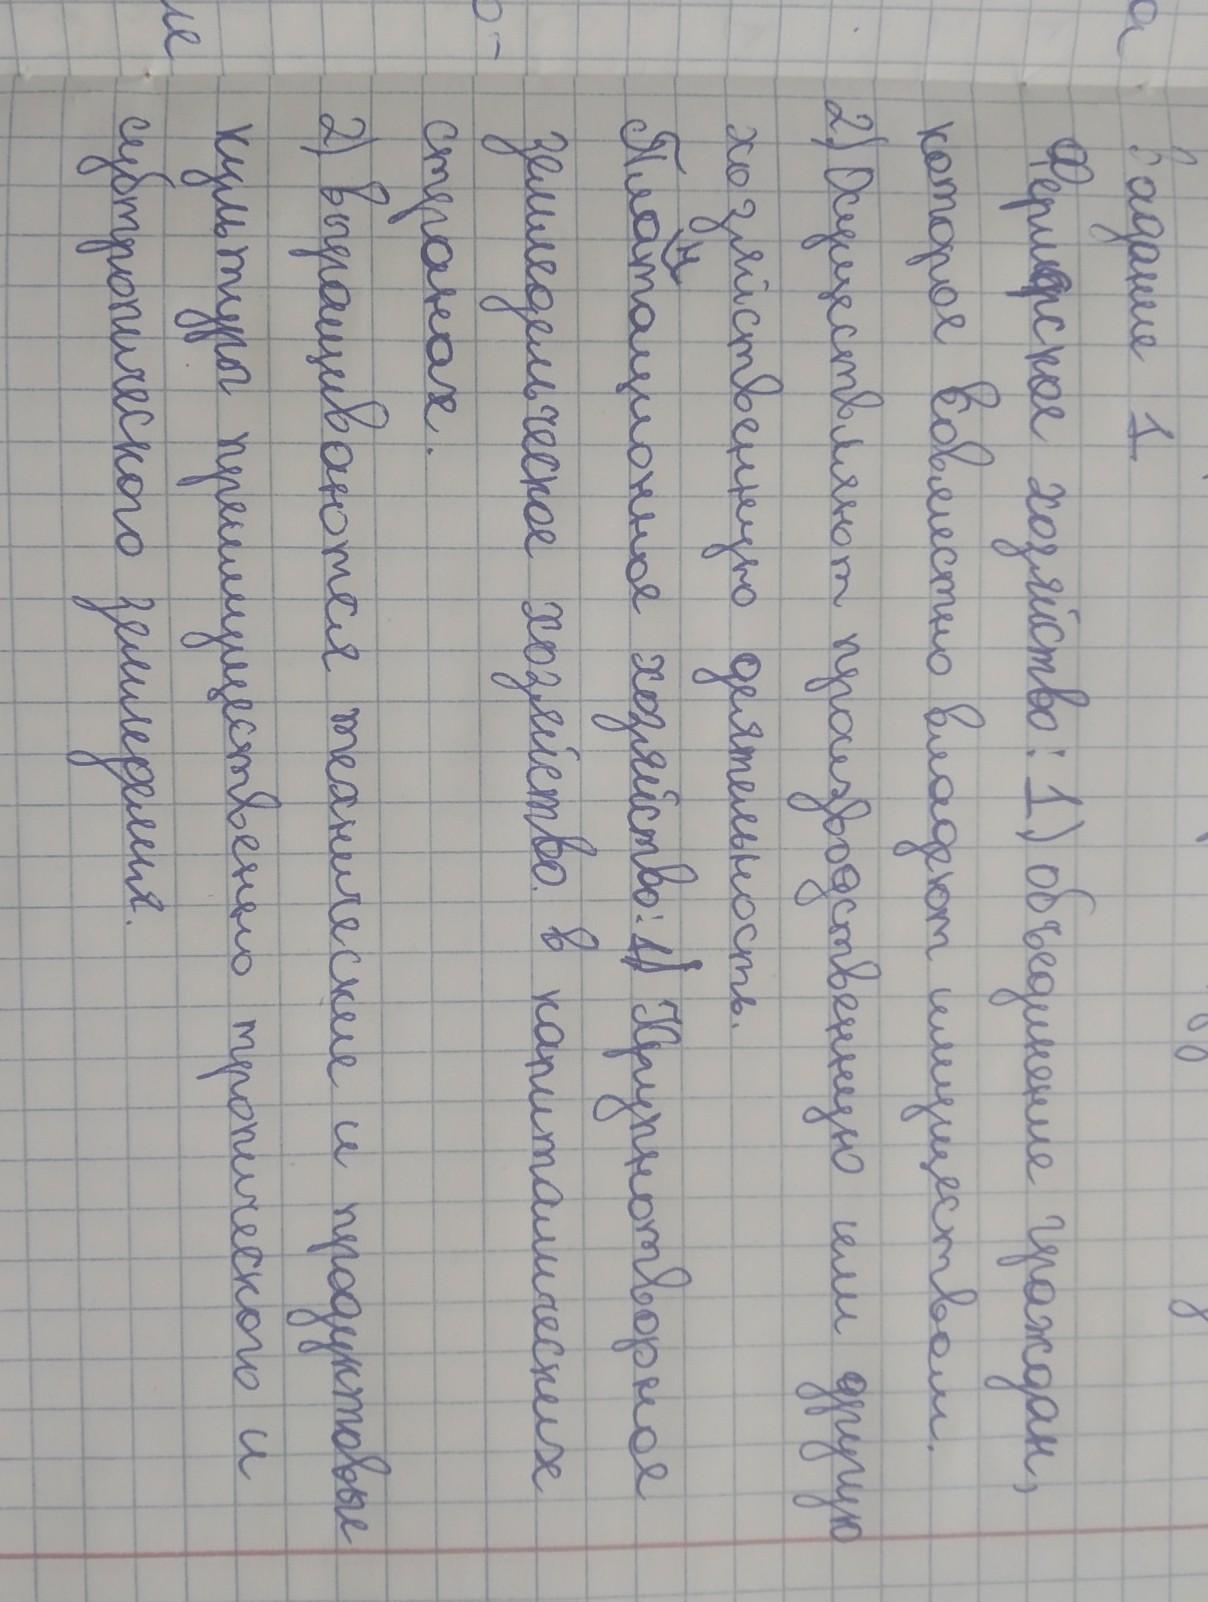 Задание 1
Фермерское хозяйство: 1) объединение граждан,
которое вовместно владеют имуществом.
2) Осуществляют производственную или другую
хозяйственную деятельность.
Плантационное хозяйство: 1) Крупнотворное
земледельческое хозяйство. в капиталических
странах.
2) выращиваются технические и продуктовые
культуры преимущественно тропического и
субтропического земледелия.